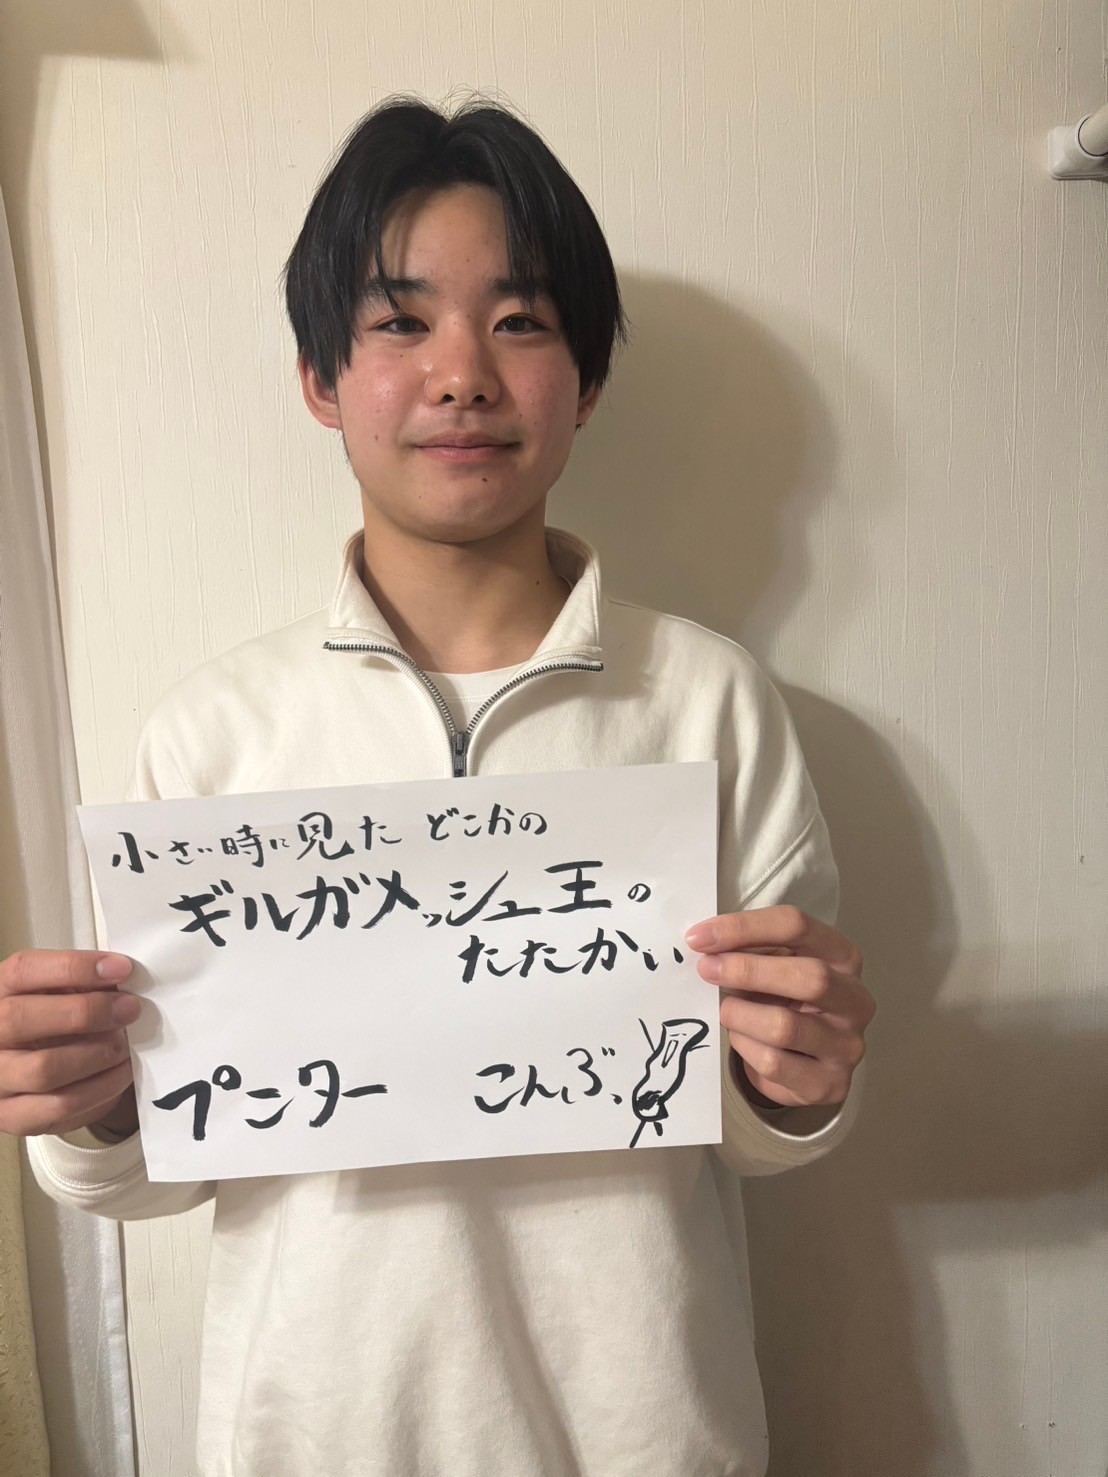 小さい時に見た どこかの
ギルガメッシュ王の
たたかい
プニター こんぶ、